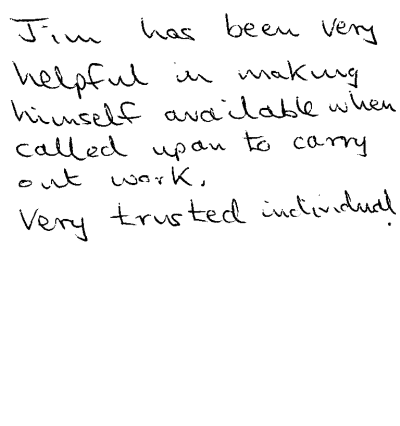 Jim has been very
helpful in making
himself available when
called upon to carry
out work.
Very trusted individual.